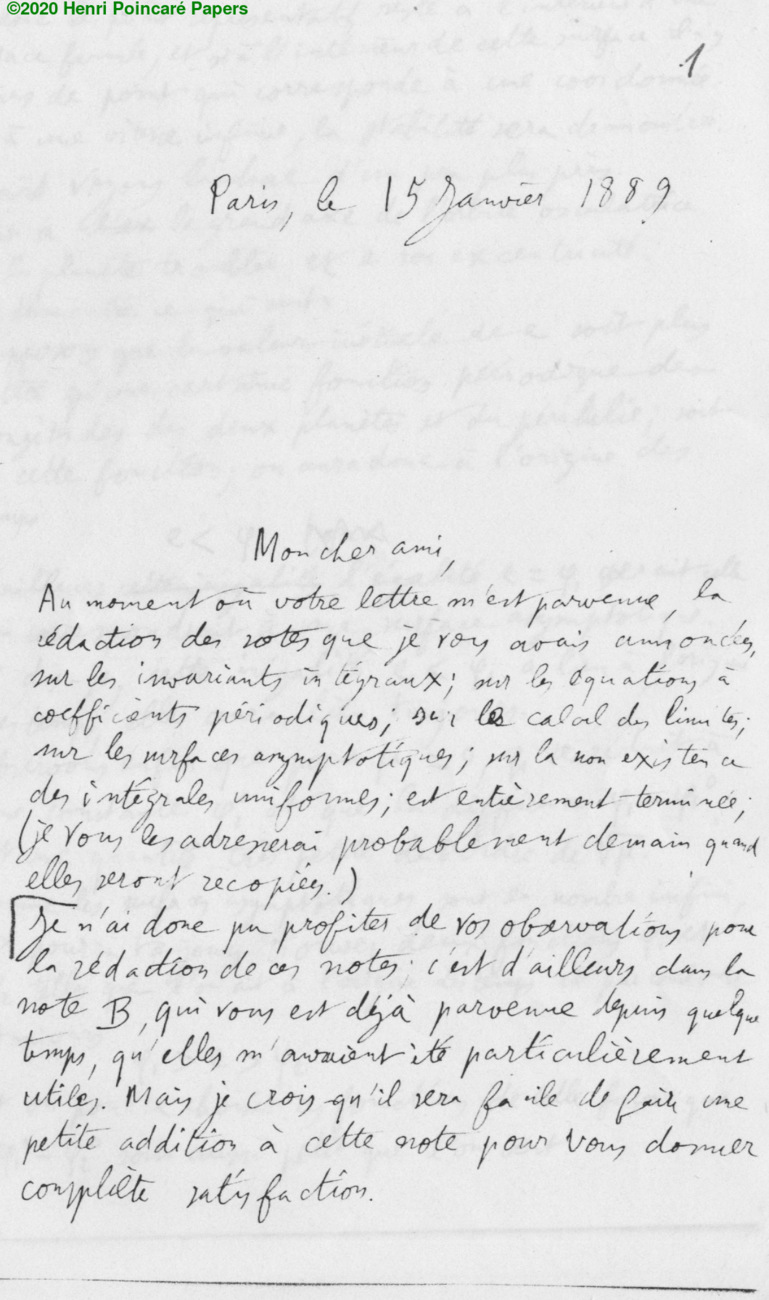 ©2020 Henri Poincaré Papers
1
Paris, le 15 Janvier 1889
Mon cher ami,
Au moment où votre lettre m'est parvenue, la
rédaction des notes que je vous avais annoncées,
sur les invariants intégraux; sur les équations à
coefficients périodiques; sur le calcul des limites;
sur les surfaces asymptotiques; sur la non existence
des intégrales uniformes; est entièrement terminée;
(je vous les adresserai probablement demain quand
elles seront recopiées.)
Je n'ai donc pu profiter de vos observations pour
la rédaction de ces notes; c'est d'ailleurs dans la
note B, qui vous est déjà parvenue depuis quelque
temps, qu'elles m'auraient été particulièrement
utiles. Mais je crois qu'il sera facile de faire une
petite addition à cette note pour vous donner
complète satisfaction.